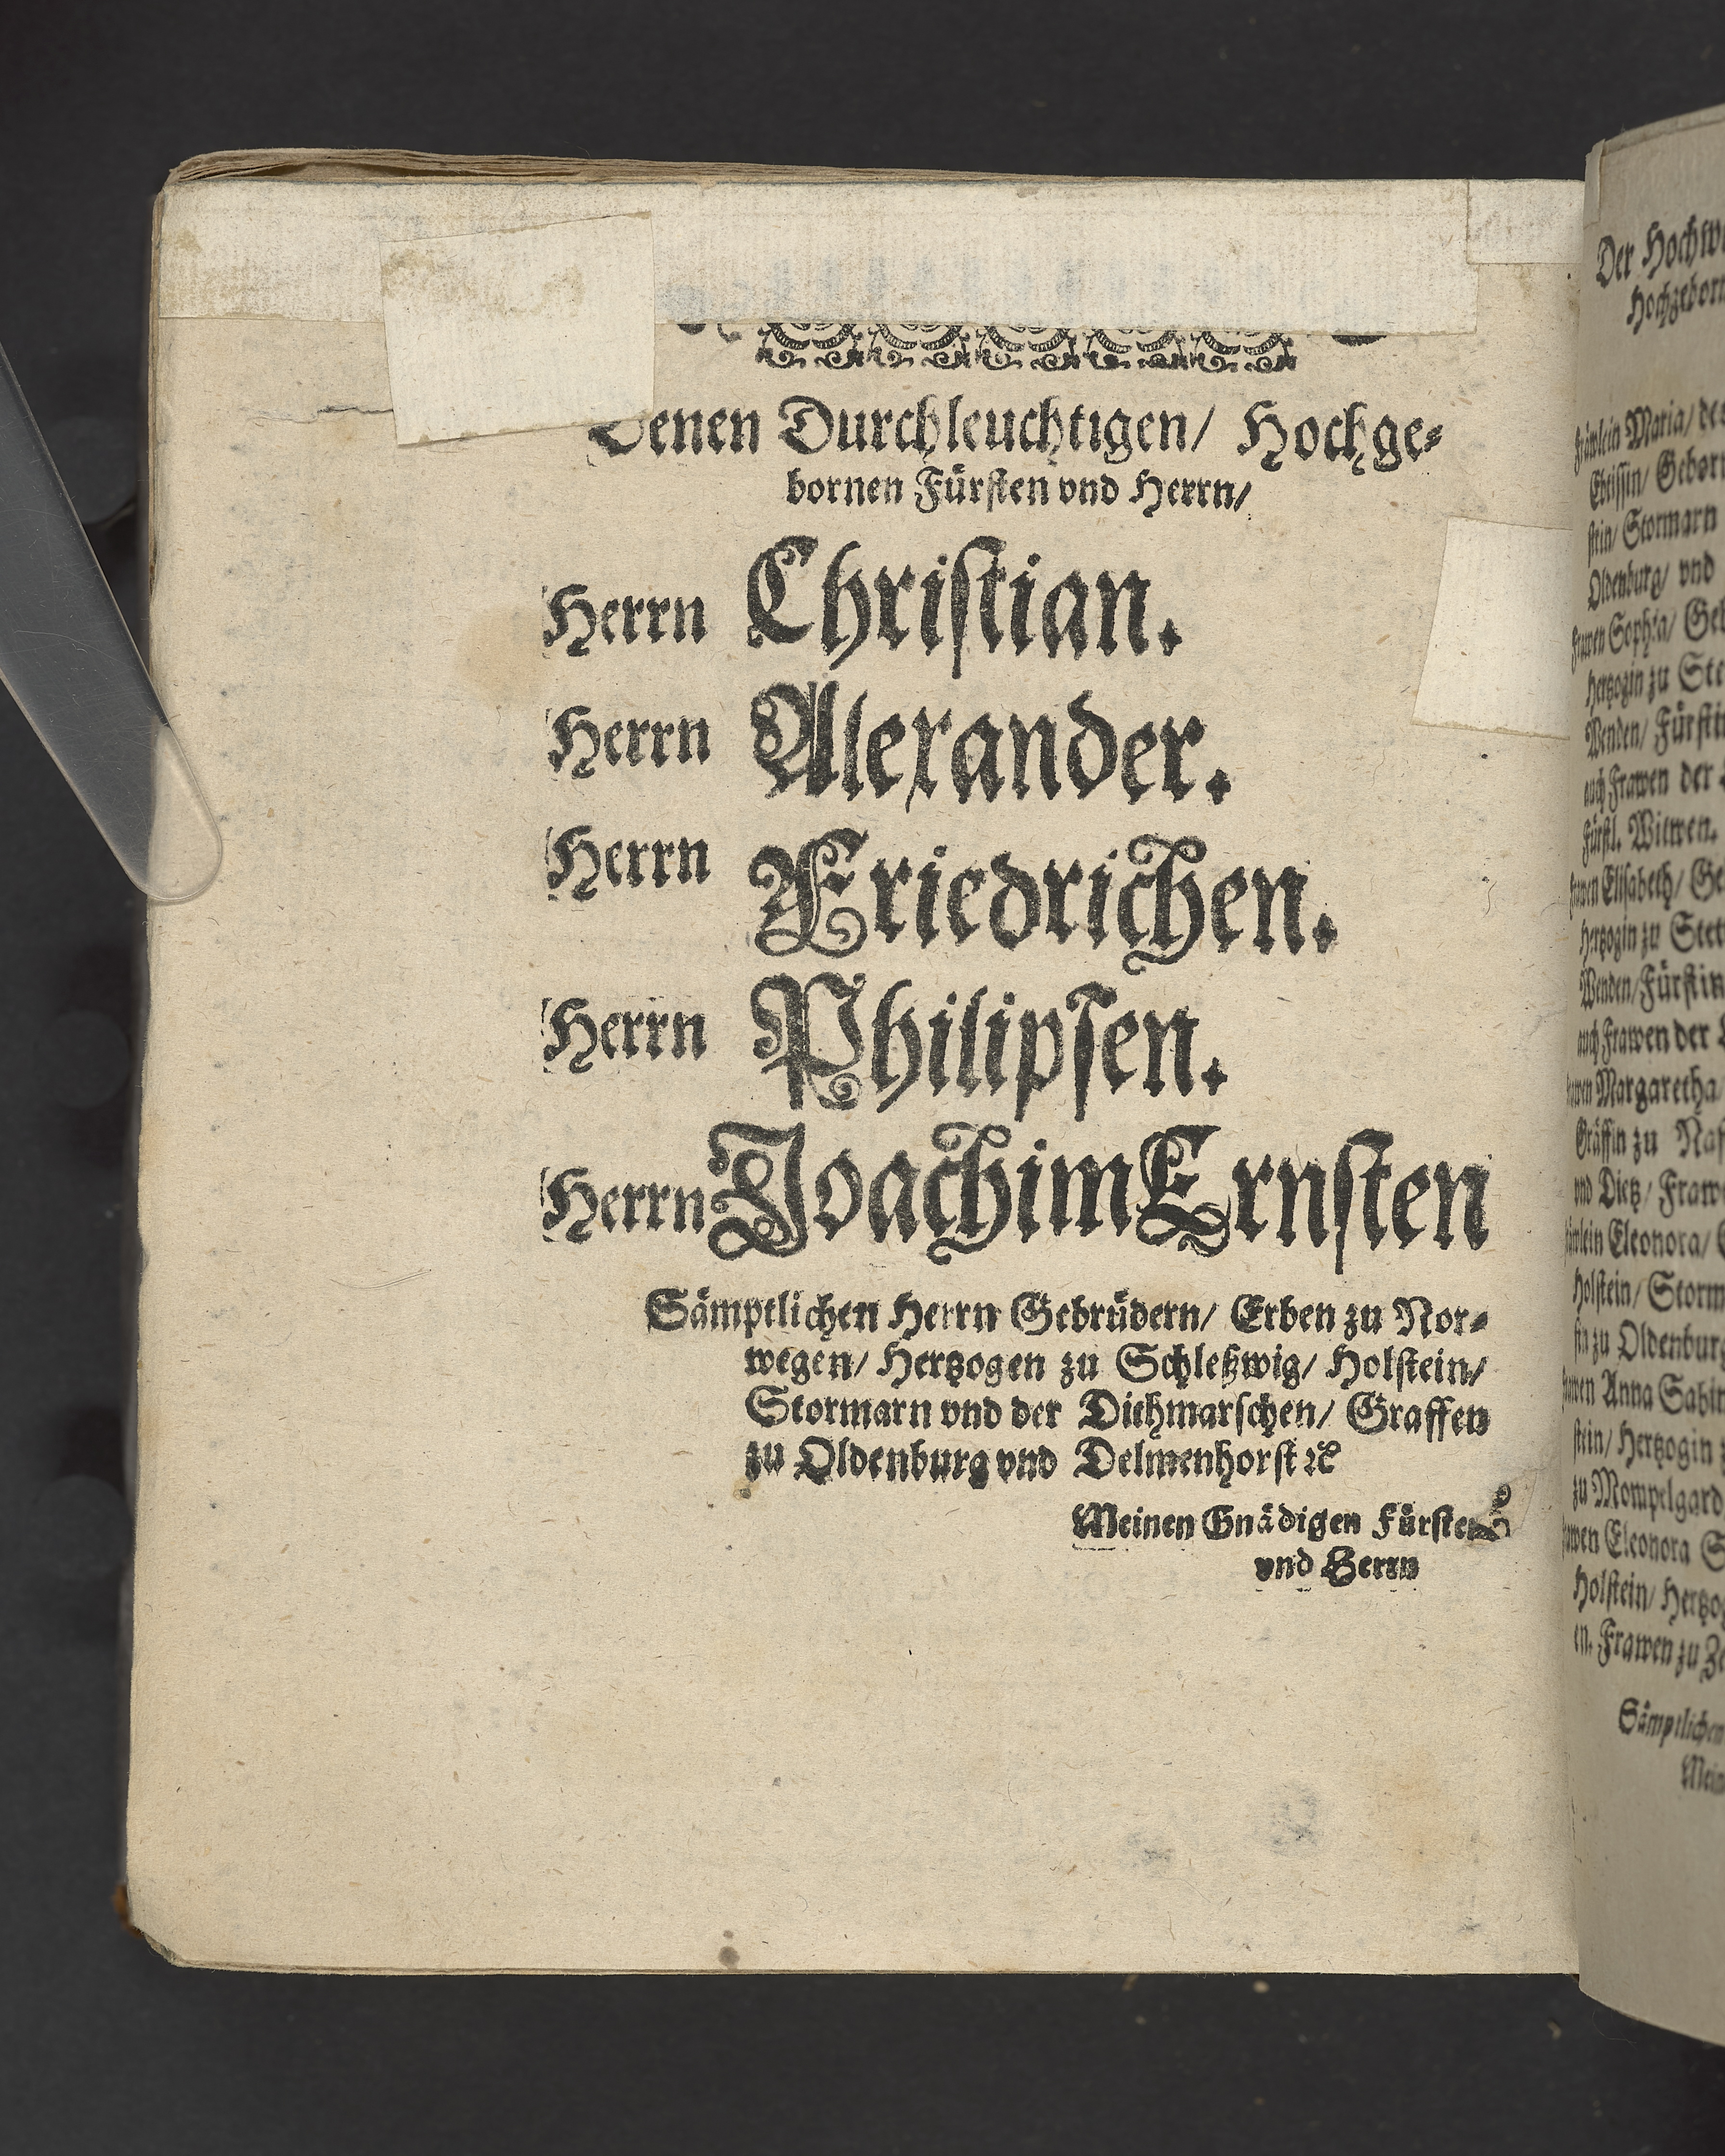 Denen Durchleuchtigen/ Hochge⸗
bornen Fürſten vnd Herrn/
Herrn Chriſtian.
Herrn Alexander.
Herrn Friedrichen.
Herrn Philipſen.
Herrn Joachim Ernſten
Sämptlichen Herrn Gebrüdern/ Erben zu Nor⸗
wegen/ Hertzogen zu Schleßwig/ Holſtein/
Stormarn vnd der Dithmarſchen/ Graffen
zu Oldenburg vnd Delmenhorſt ꝛc
Meinen Gnädigen Fürſten
vnd Herrn
Der
Hochgeborn
Fräwlein Maria/
Ebtiſſin/ Geborn
ſtein/ Stormarn
Oldenburg/ vnd
Frawen Sophia/
Hertzogin zu
Wenden/
auch Frawen der
Fürſtl. Witwen.
Frawen Eliſabeth/
Hertzogin zu
Wenden/
auch Frawen der
Frawen Margaretha
Gräffin zu
vnd Dietz/
Fräwlein Eleonora/
Holſtein/
zu Oldenburg
Frawen Anna
ſtein/ Hertzogin
zu Mompelgard
Frawen Eleonora
Holſtein/
en. Frawen zu
Sämptlichen